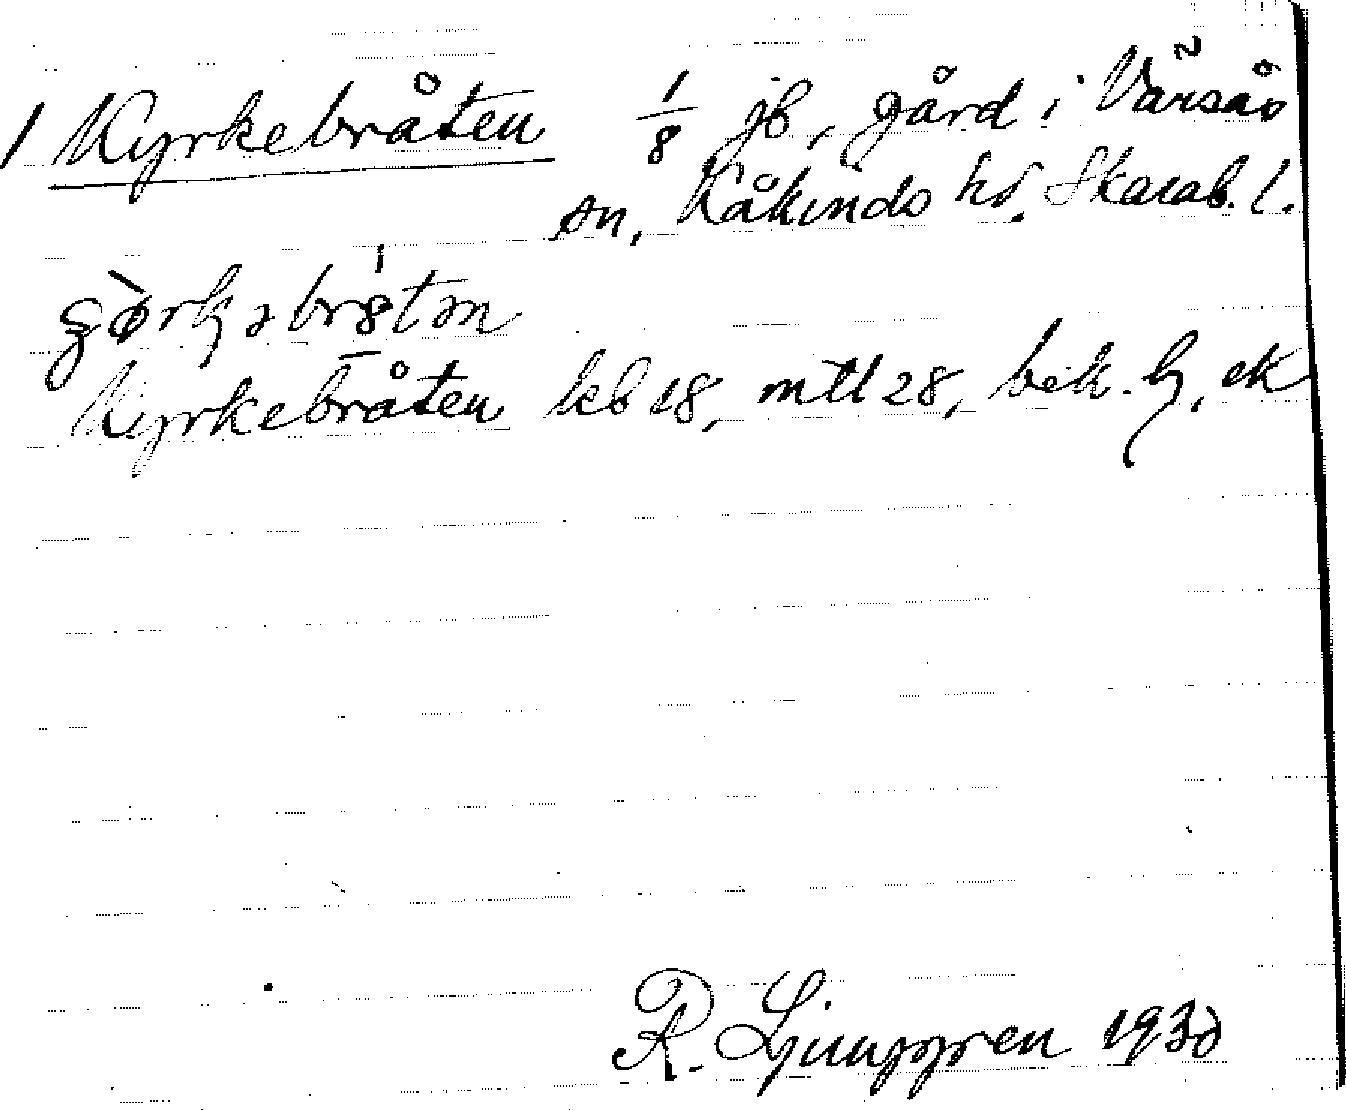 1 Kyrkebråten 1/8 jb, gård i Värsås
sn, Kåkinds hd. Skarab. l.
Kyrkebråten kb 18, mtl 28, bek. G, ek
R. Ljunggren 1930